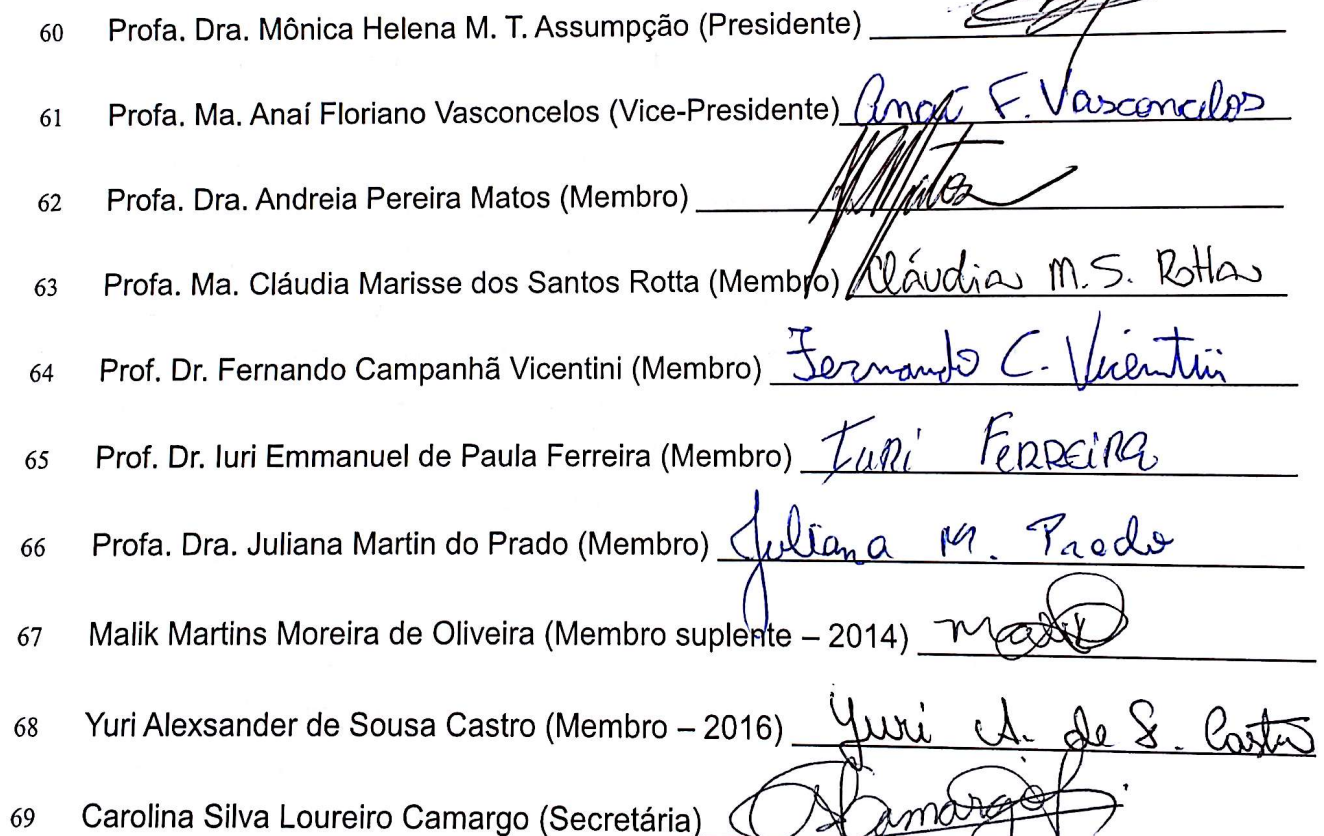 60 Profa. Dra. Mônica Helena M. T. Assumpção (Presidente)
61 Profa. Ma. Anaí Floriano Vasconcelos (Vice-Presidente) Anaí F. Vasconcelos
62 Profa. Dra. Andreia Pereira Matos (Membro)
63 Profa. Ma. Cláudia Marisse dos Santos Rotta (Membro) Cláudia M. S. Rotta
64 Prof. Dr. Fernando Campanhã Vicentini (Membro) Fernando C. Vicentini
65 Prof. Dr. Iuri Emmanuel de Paula Ferreira (Membro) Iuri Ferreira
66 Profa. Dra. Juliana Martin do Prado (Membro) Juliana M. Prado
67 Malik Martins Moreira de Oliveira (Membro suplente – 2014)
68 Yuri Alexsander de Sousa Castro (Membro – 2016) Yuri A. de S. Castro
69 Carolina Silva Loureiro Camargo (Secretária)